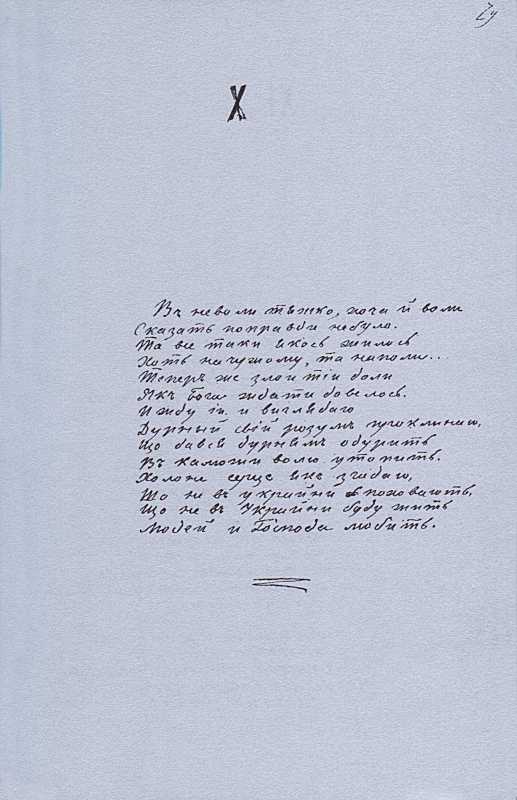 24
X
Въ неволи тяжко, хоча й воли
Сказать поправди небуло.
Та все таки якось жилось
Хоть на чужому, та наполи..
Теперъ же злои тіи доли
Якъ Бога ждати довелось.
И жду іи. и виглядаю
Дурный свій розумъ проклинаю,
Що давсь дурнямъ одурить
Въ калюжи волю утопить.
Холоне серце якъ згадаю,
Що не въ украйни поховають,
Що не въ Украйни буду жить
Людей и Господа любить.